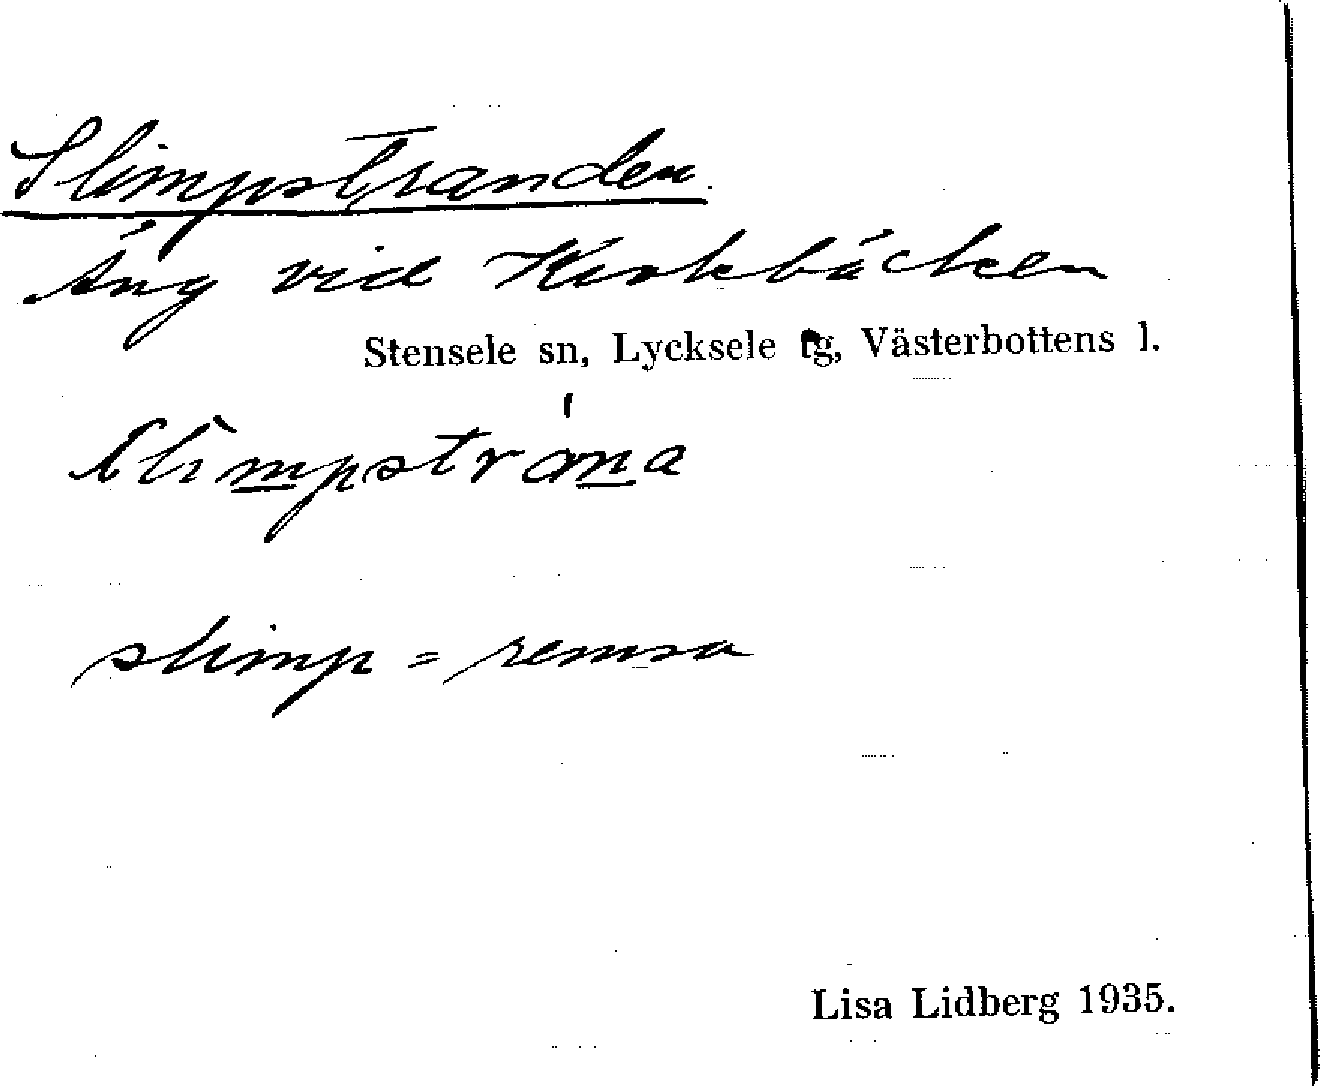 Slimpstranden.
Äng vid Kirkbäcken
Stensele sn, Lycksele tg, Västerbottens l.
slimpstrana
slimp = remsa
Lisa Lidberg 1935.